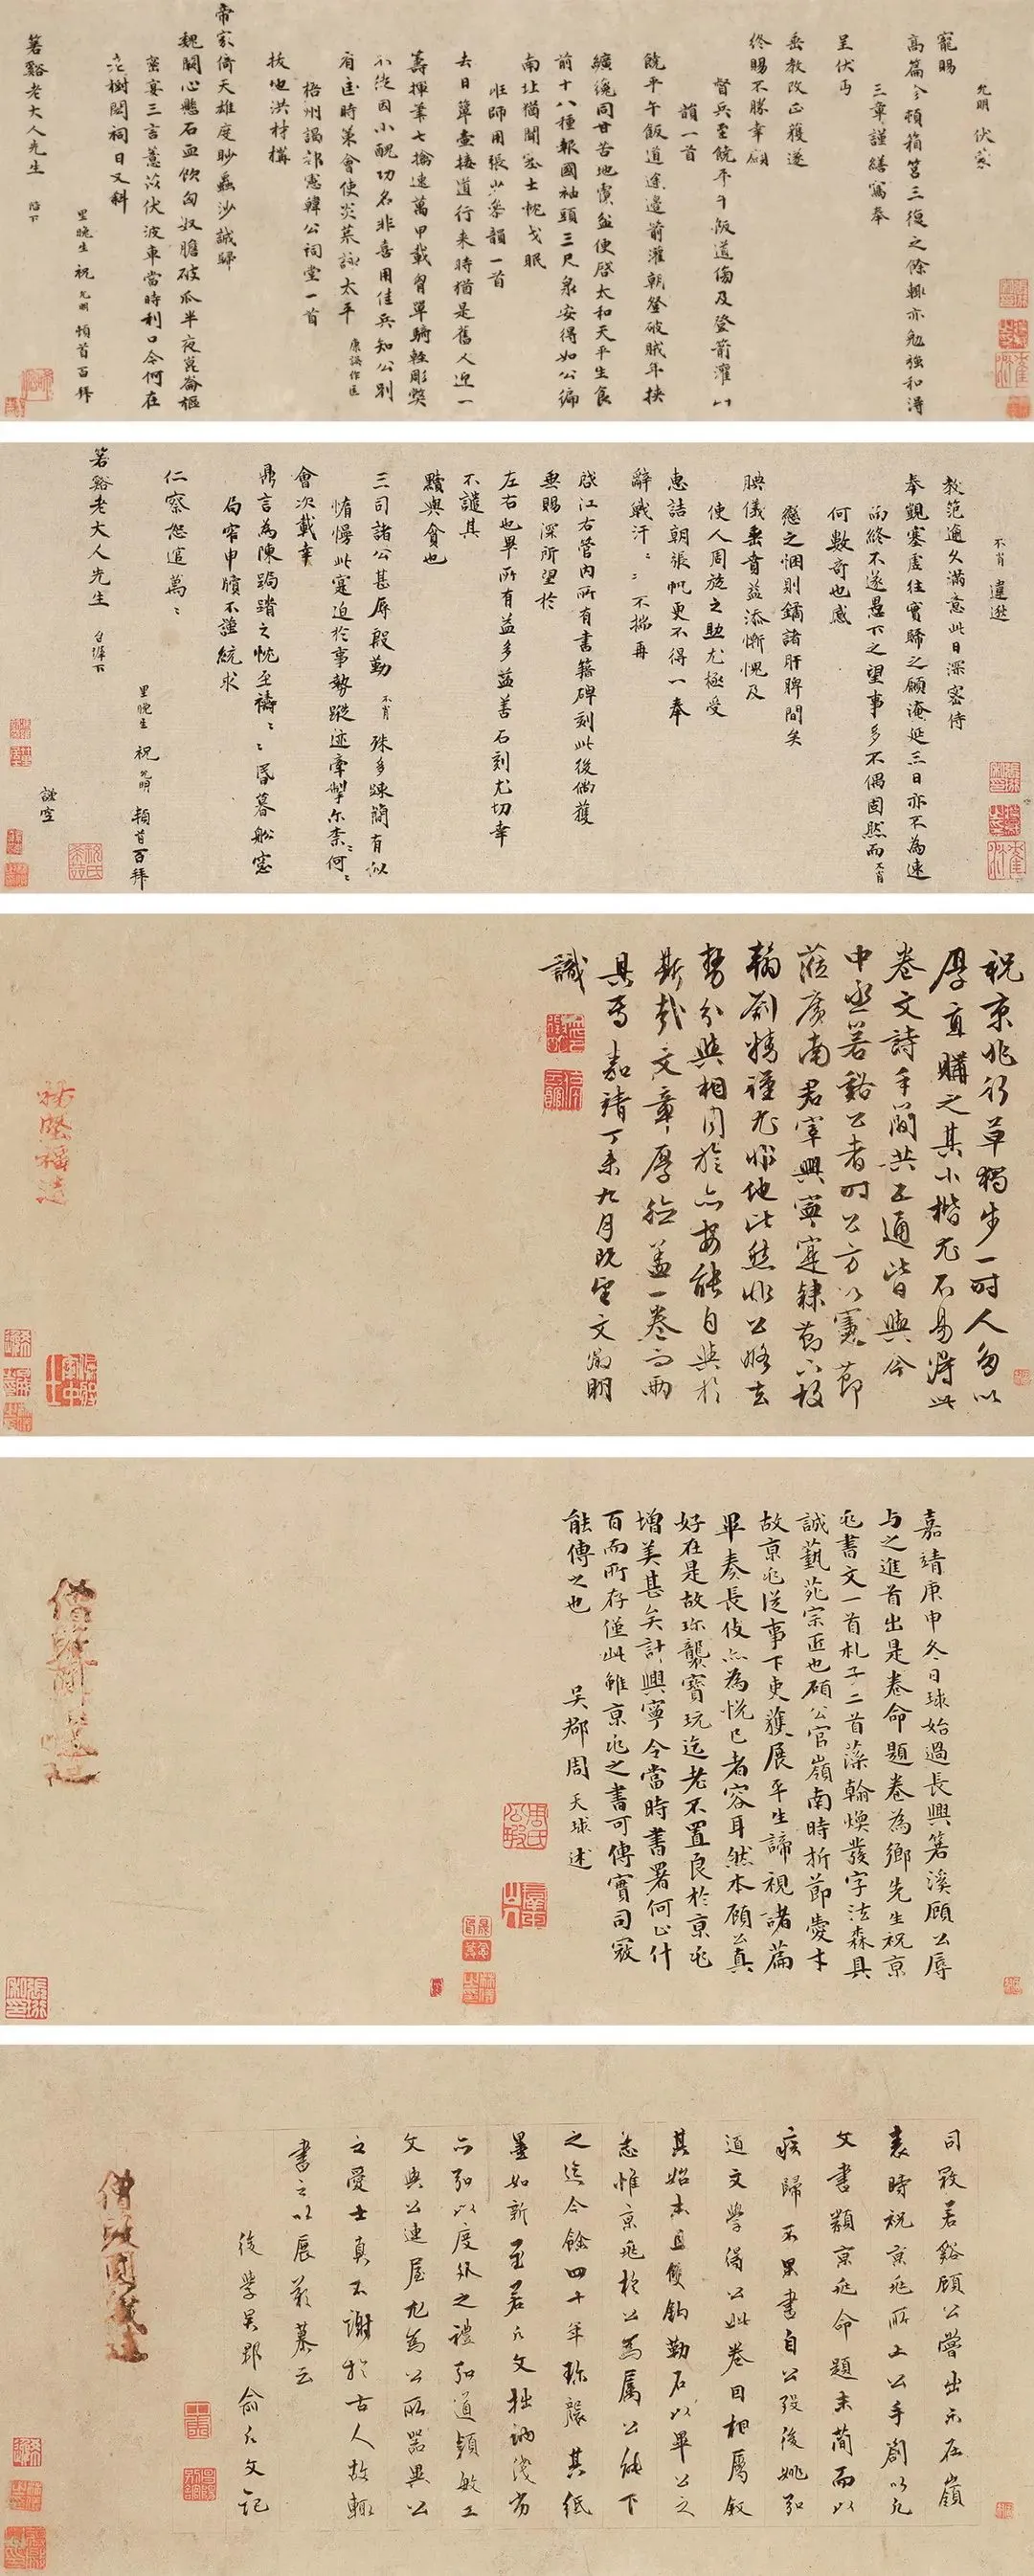 允明 伏蒙
寵賜
高篇今頓箱笥三復之餘輒亦勉強和得
三章謹繕寫奉
呈伏丐
垂教改正獲遂
終賜不勝幸願
督兵至饒平午飯道傷及登箭灌
韻一首
饒平午飯道途邊箭灌朝登破賊年挾
纊纔同甘苦地賡盆便啓太和天平生食
前十八種報國袖頭三尺泉安得如公編
南北猶聞窓士枕戈眠
班師用張韻一首
去日簞壺擁道行来時猶是舊人迎一
籌揮筆七擒速萬甲載胷單騎輕彫獘
不純因小醜功名非喜用佳兵知公别
有匡時策會使炎荒詠太平
梧州謁都憲韓公祠堂一首
拔地洪材構
帝家倚天雄度眇蟲沙誠歸
魏闕心懸石血飲匈奴膽破瓜半夜崑崙樞
蜜宴三言薏苡伏波車當時利口今何在
老樹閟祠日又斜
里晚生祝允明頓首百拜
箬谿老大人先生 陪下
不肖違逖
教范逾久滿意此日深密侍
奉觀塞虛往實歸之願淹延三日亦不為速
而終不遂愚下之望事多不偶固然而不肖
何數奇也感
戀之悃則鏑諸肝脾間矣
腆儀垂賁益添慚愧及
使人周旋之助尤極受
惠詰朝張帆更不得一奉
辭戰汗〻〻不揣再
啟江右管内所有書籍碑刻此後倘獲
垂賜深所望於
左右也畢所有益多益善石刻尤切幸
不譴其
黷與貪也
三司諸公甚辱殷勤不肖殊多踈簡有似
惰慢此寔迫於事勢蹤迹牽掣尔柰何〻
會次載幸
鼎言為陳跼蹐之忱至禱〻〻昏暮舩窓
局窄申牘不謹統求
仁察恕宥萬〻
里晚生祝允明頓首百拜
箬谿老大人先生 台座下
謹空
祝京兆行草獨步一時人多以
厚直購之其小楷尤不易得此
卷文詩手簡共五通皆與今
中丞箬谿公者時公方以憲節
蒞廣南君宰興寧寔隸節下故
翰劄精謹尤非他比然非公略去
勢分與相周旋亦安能自與於
斯哉文章厚誼蓋一卷而兩
具焉嘉靖丁未九月既望文徵明
識
嘉靖庚申冬日球始過長興箬溪顧公辱
与之進首出是卷命題卷為鄉先生祝京
兆書文一首札子二首藻翰煥發字法森具
誠藝苑宗匠也顧公官嶺南時折節愛才
故京兆従事下吏獲展平生諦視諸篇
畢奏長伎亦為悦己者容耳然本顧公真
好在是故珎襲寶玩迄老不置良於京兆
增美甚矣計興寧令當時書署何止什
百而所存僅此雖京兆之書可傳實司寇
能傳之也
吴郡周天球述
司寇若谿顧公嘗出示在嶺
表時祝京兆所上公手劄以允
文書類京兆命題末簡而以
疾歸不果書自公歿後姚弘
道文學得公此卷因相屬叙
其始末且雙鉤勒石以畢公之
志惟京兆於公為屬公能下
之迄今餘四十年珎襲其紙
墨如新至若允文拙訥浅劣
而弘以度外之禮弘道穎敏工
文與公連屋尤為公所器異公
之愛士真不謝於古人故輒
書之以展嚮慕云
後學吴郡俞允文記